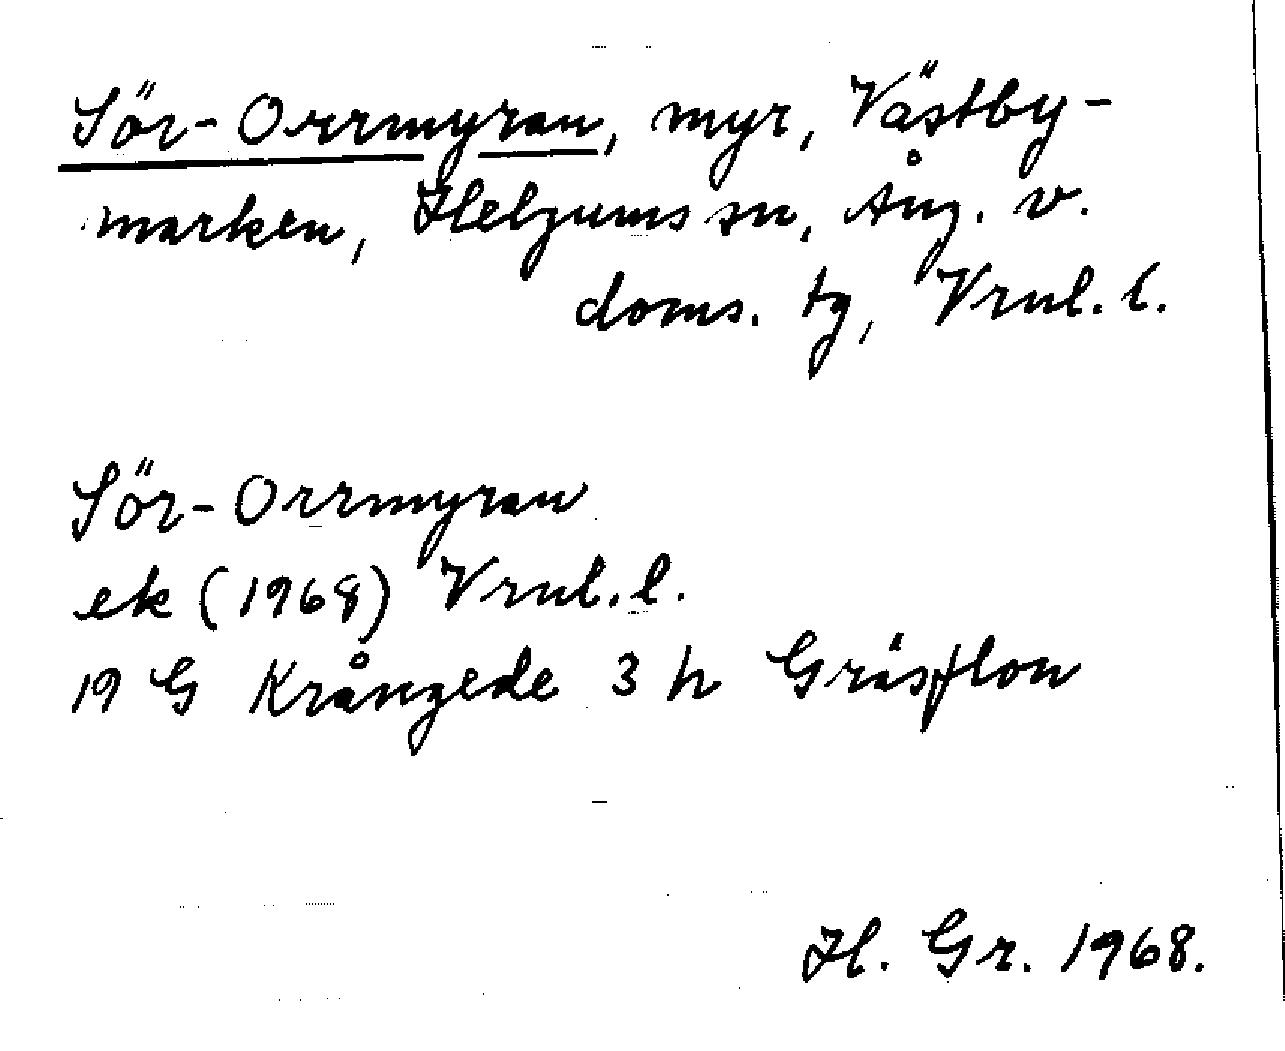 Sör-Orrmyran, myr, Västby-
marken, Helgums sn, Ång. v.
doms. tg, Vrnl. l.
Sör-Orrmyran
ek (1968) Vrnl. l.
19 G Krångede 3 h Gräsflon
H. Gr. 1968.